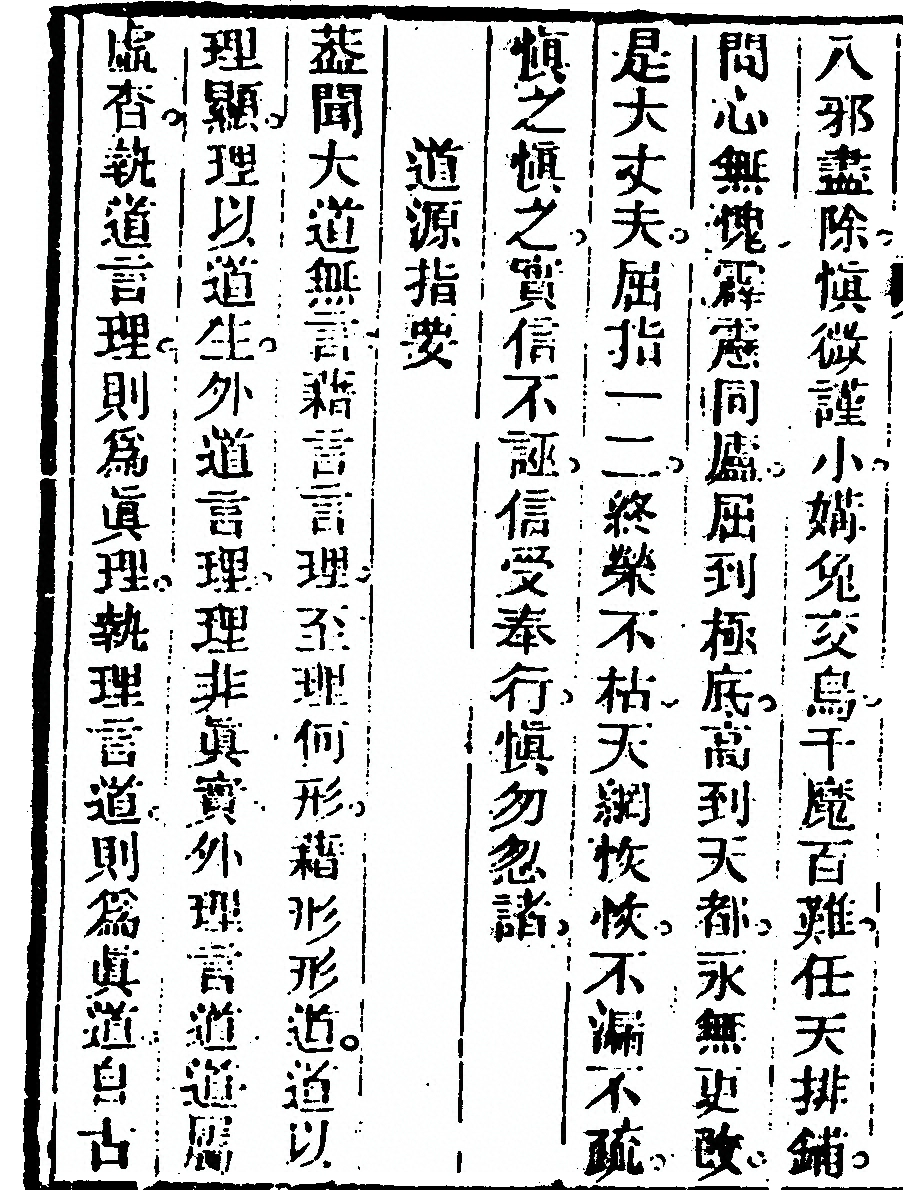 八邪盡除。慎微謹小。媾兔交烏。千魔百難。任天排鋪。
問心無愧。霹靂同廬。屈到極底。高到天都。永無更改。
是大丈夫。屈指一二。終榮不枯。天網恢恢。不漏不疏。
慎之慎之。實信不誣。信受奉行。慎勿忽諸。
道源指要
蓋聞大道無言。藉言言理。至理何形。藉形形道。道以
理顯。理以道生。外道言理。理非眞實。外理言道。道屬
虛杳。執道言理。則爲眞理。執理言道。則爲眞道。自古